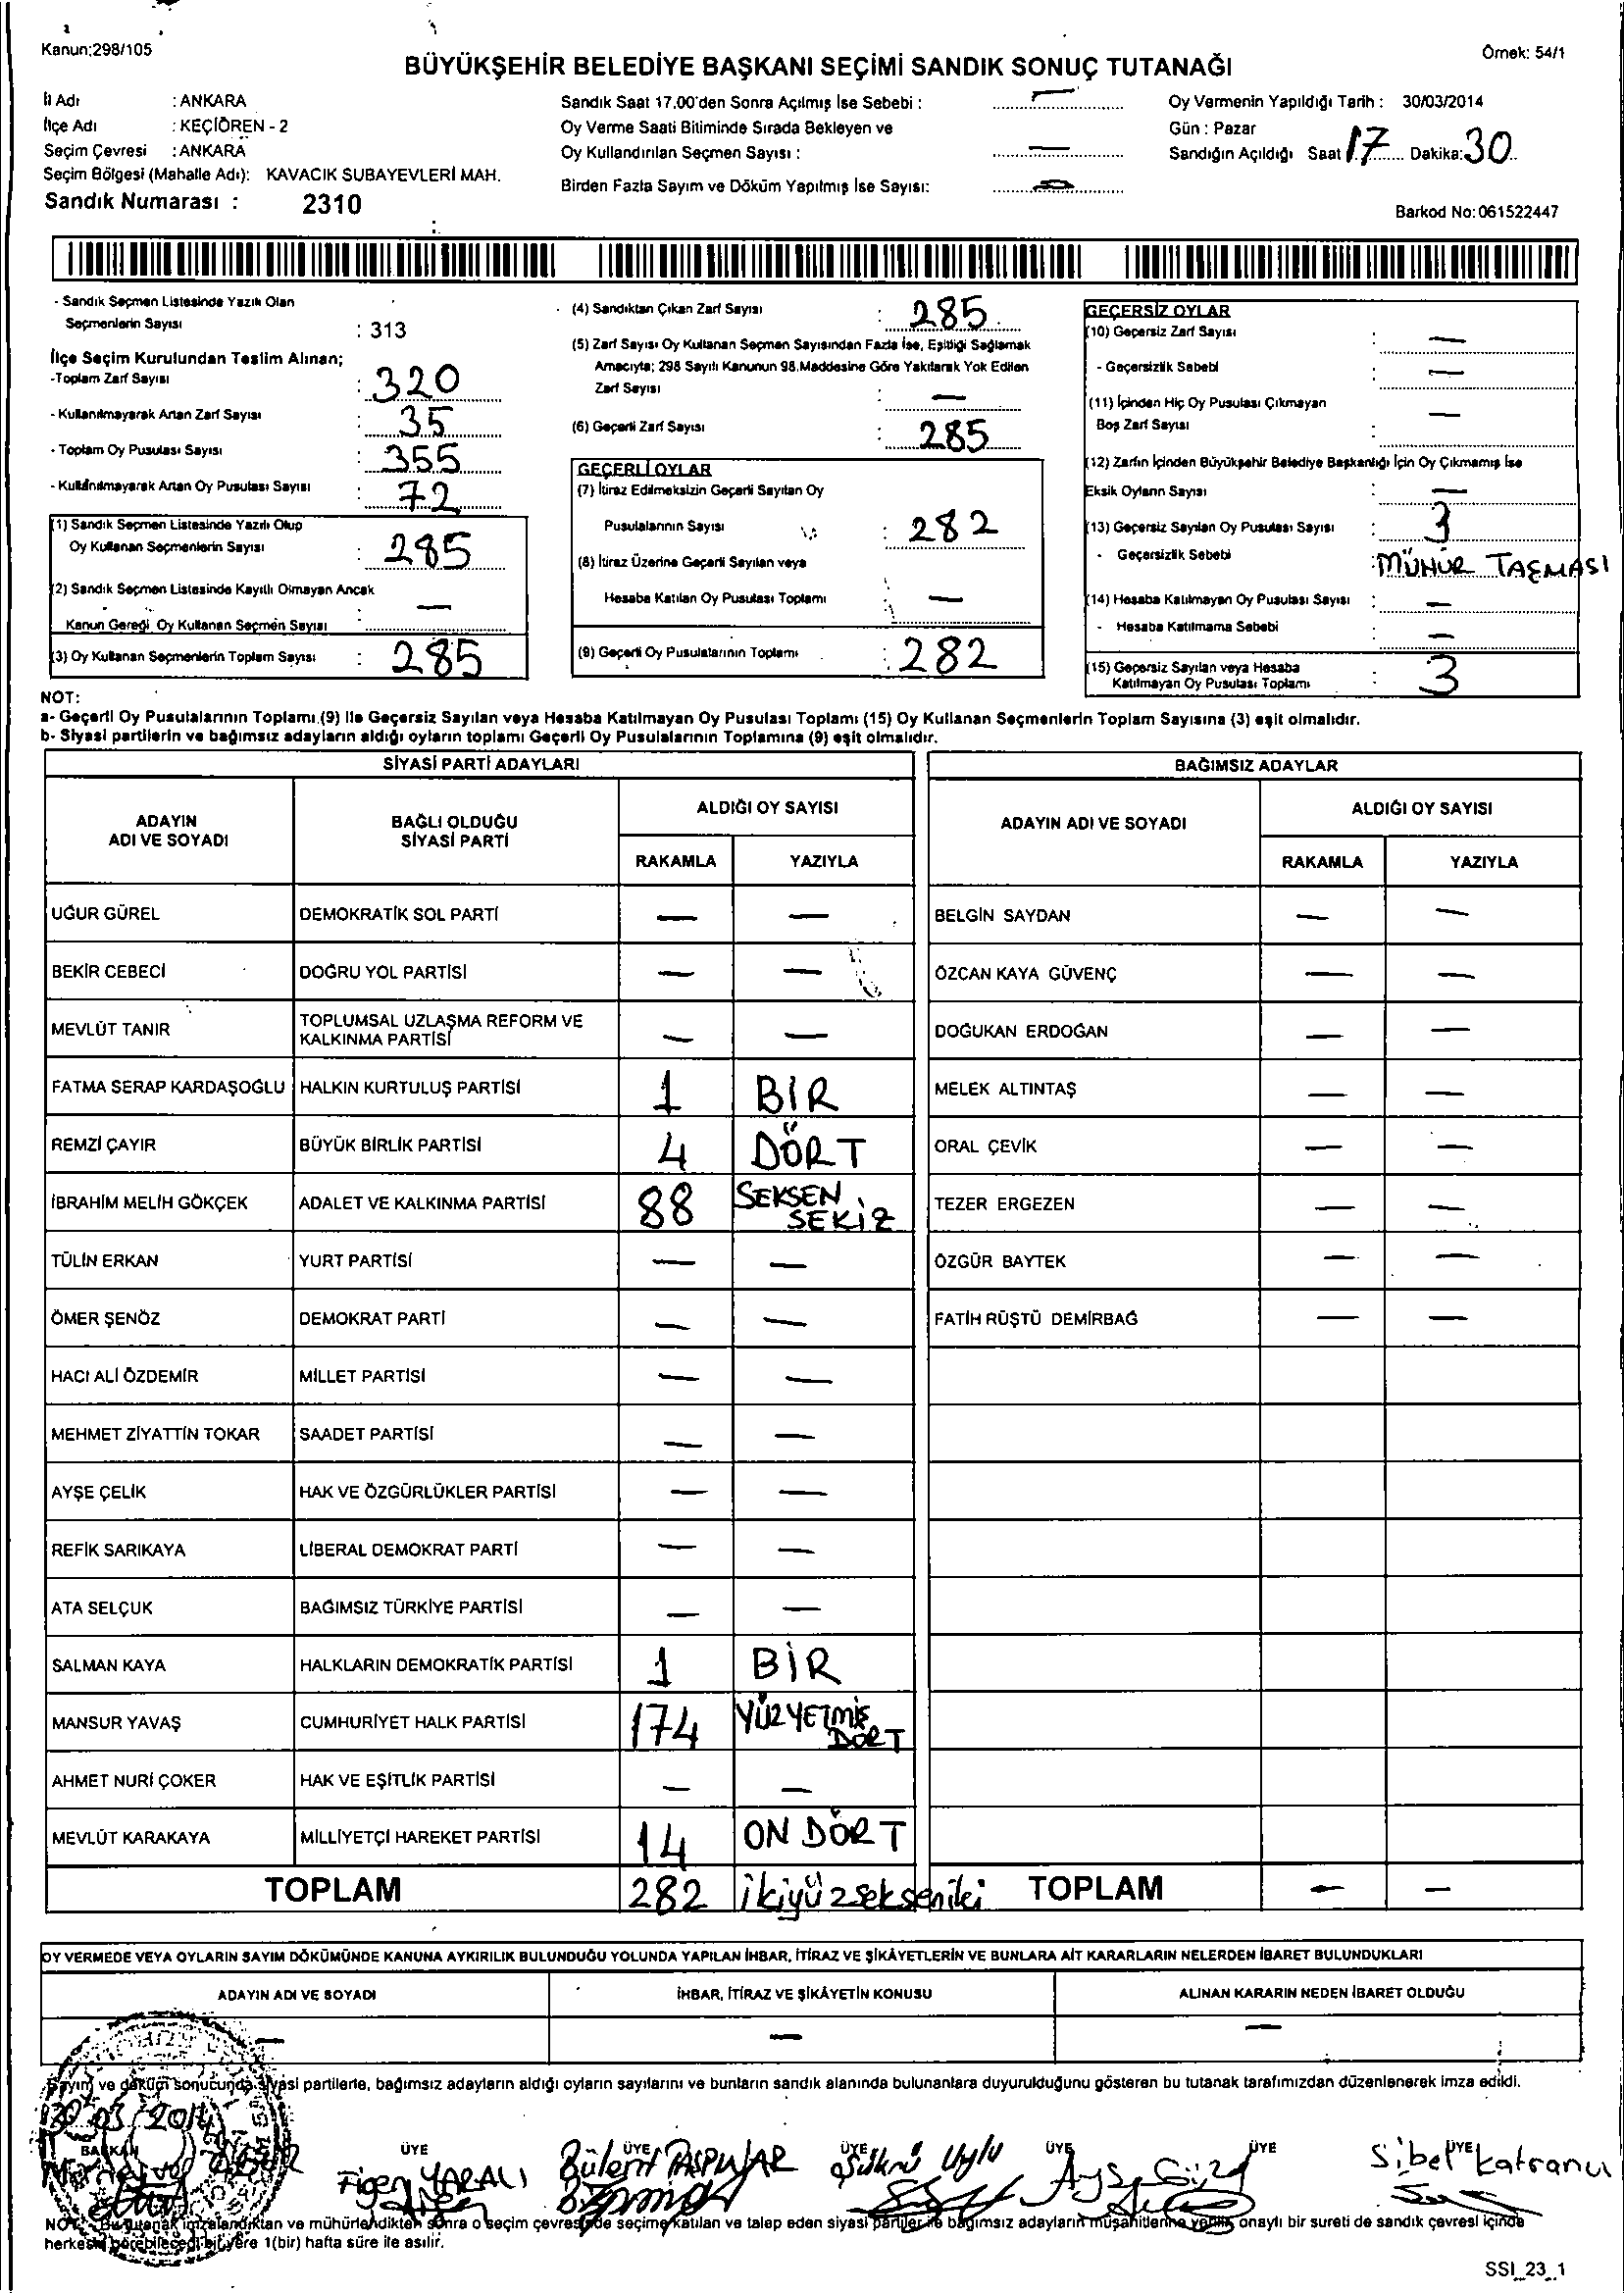 Kanun:298/105
BÜYÜKŞEHİR BELEDİYE BAŞKANI SEÇİMİ SANDIK SONUÇ TUTANAĞI
Örnek: 54/1
İl Adı : ANKARA
İlçe Adı : KEÇİÖREN - 2
Seçim Çevresi : ANKARA
Seçim Bölgesi (Mahalle Adı): KAVACIK SUBAYEVLERİ MAH.
Sandık Numarası : 2310
Sandık Saat 17.00'den Sonra Açılmış İse Sebebi : —
Oy Verme Saati Bitiminde Sırada Bekleyen ve
Oy Kullandırılan Seçmen Sayısı : —
Birden Fazla Sayım ve Döküm Yapılmış İse Sayısı: —
Oy Vermenin Yapıldığı Tarih : 30/03/2014
Gün : Pazar
Sandığın Açıldığı Saat 17 Dakika: 30
Barkod No: 061522447
- Sandık Seçmen Listesinde Yazılı Olan
Seçmenlerin Sayısı : 313
İlçe Seçim Kurulundan Teslim Alınan;
-Toplam Zarf Sayısı : 320
- Kullanılmayarak Artan Zarf Sayısı : 35
- Toplam Oy Pusulası Sayısı : 355
- Kullanılmayarak Artan Oy Pusulası Sayısı : 72
(1) Sandık Seçmen Listesinde Yazılı Olup
Oy Kullanan Seçmenlerin Sayısı : 285
(2) Sandık Seçmen Listesinde Kayıtlı Olmayan Ancak
Kanun Gereği Oy Kullanan Seçmen Sayısı : —
(3) Oy Kullanan Seçmenlerin Toplam Sayısı : 285
(4) Sandıktan Çıkan Zarf Sayısı : 285
(5) Zarf Sayısı Oy Kullanan Seçmen Sayısından Fazla İse, Eşitliği Sağlamak
Amacıyla; 298 Sayılı Kanunun 98.Maddesine Göre Yakılarak Yok Edilen
Zarf Sayısı : —
(6) Geçerli Zarf Sayısı : 285
GEÇERLİ OYLAR
(7) İtiraz Edilmeksizin Geçerli Sayılan Oy
Pusulalarının Sayısı : 282
(8) İtiraz Üzerine Geçerli Sayılan veya
Hesaba Katılan Oy Pusulası Toplamı : —
(9) Geçerli Oy Pusulalarının Toplamı : 282
GEÇERSİZ OYLAR
(10) Geçersiz Zarf Sayısı : —
- Geçersizlik Sebebi : —
(11) İçinden Hiç Oy Pusulası Çıkmayan
Boş Zarf Sayısı : —
(12) Zarfın İçinden Büyükşehir Belediye Başkanlığı İçin Oy Çıkmamış İse
Eksik Oyların Sayısı : —
(13) Geçersiz Sayılan Oy Pusulası Sayısı : 3
- Geçersizlik Sebebi : MÜHÜR TAŞMASI
(14) Hesaba Katılmayan Oy Pusulası Sayısı : —
- Hesaba Katılmama Sebebi : —
(15) Geçersiz Sayılan veya Hesaba
Katılmayan Oy Pusulası Toplamı : 3
NOT:
a- Geçerli Oy Pusulalarının Toplamı (9) ile Geçersiz Sayılan veya Hesaba Katılmayan Oy Pusulası Toplamı (15) Oy Kullanan Seçmenlerin Toplam Sayısına (3) eşit olmalıdır.
b- Siyasi partilerin ve bağımsız adayların aldığı oyların toplamı Geçerli Oy Pusulalarının Toplamına (9) eşit olmalıdır.
SİYASİ PARTİ ADAYLARI
ADAYIN ADI VE SOYADI BAĞLI OLDUĞU SİYASİ PARTİ ALDIĞI OY SAYISI
RAKAMLA YAZIYLA
UĞUR GÜREL DEMOKRATİK SOL PARTİ — —
BEKİR CEBECİ DOĞRU YOL PARTİSİ — —
MEVLÜT TANIR TOPLUMSAL UZLAŞMA REFORM VE KALKINMA PARTİSİ — —
FATMA SERAP KARDAŞOĞLU HALKIN KURTULUŞ PARTİSİ 1 BİR
REMZİ ÇAYIR BÜYÜK BİRLİK PARTİSİ 4 DÖRT
İBRAHİM MELİH GÖKÇEK ADALET VE KALKINMA PARTİSİ 88 SEKSEN SEKİZ
TÜLİN ERKAN YURT PARTİSİ — —
ÖMER ŞENÖZ DEMOKRAT PARTİ — —
HACI ALİ ÖZDEMİR MİLLET PARTİSİ — —
MEHMET ZİYATTİN TOKAR SAADET PARTİSİ — —
AYŞE ÇELİK HAK VE ÖZGÜRLÜKLER PARTİSİ — —
REFİK SARIKAYA LİBERAL DEMOKRAT PARTİ — —
ATA SELÇUK BAĞIMSIZ TÜRKİYE PARTİSİ — —
SALMAN KAYA HALKLARIN DEMOKRATİK PARTİSİ 1 BİR
MANSUR YAVAŞ CUMHURİYET HALK PARTİSİ 174 YÜZYETMİŞ DÖRT
AHMET NURİ ÇOKER HAK VE EŞİTLİK PARTİSİ — —
MEVLÜT KARAKAYA MİLLİYETÇİ HAREKET PARTİSİ 14 ON DÖRT
TOPLAM 282 ikiyüzsekseniki
BAĞIMSIZ ADAYLAR
ADAYIN ADI VE SOYADI ALDIĞI OY SAYISI
RAKAMLA YAZIYLA
BELGİN SAYDAN — —
ÖZCAN KAYA GÜVENÇ — —
DOĞUKAN ERDOĞAN — —
MELEK ALTINTAŞ — —
ORAL ÇEVİK — —
TEZER ERGEZEN — —
ÖZGÜR BAYTEK — —
FATİH RÜŞTÜ DEMİRBAĞ — —
TOPLAM — —
OY VERMEDE VEYA OYLARIN SAYIM DÖKÜMÜNDE KANUNA AYKIRILIK BULUNDUĞU YOLUNDA YAPILAN İHBAR, İTİRAZ VE ŞİKÂYETLERİN VE BUNLARA AİT KARARLARIN NELERDEN İBARET BULUNDUKLARI
ADAYIN ADI VE SOYADI İHBAR, İTİRAZ VE ŞİKÂYETİN KONUSU ALINAN KARARIN NEDEN İBARET OLDUĞU
— — —
Sayım ve döküm sonucunda siyasi partilerle, bağımsız adayların aldığı oyların sayılarını ve bunların sandık alanında bulunanlara duyurulduğunu gösteren bu tutanak tarafımızdan düzenlenerek imza edildi.
30/03/2014
BAŞKAN ÜYE ÜYE ÜYE ÜYE ÜYE
Figen YARALI Bülent Şükrü Uylu Ayşe Sibel Katrancı
NOT: Bu tutanak imzalandıktan ve mühürlendikten sonra o seçim çevresinde seçime katılan ve talep eden siyasi partiler ile bağımsız adayların müşahitlerine verilir, onaylı bir sureti de sandık çevresi içinde
herkesin görebileceği bir yere 1(bir) hafta süre ile asılır.
SSI_23_1